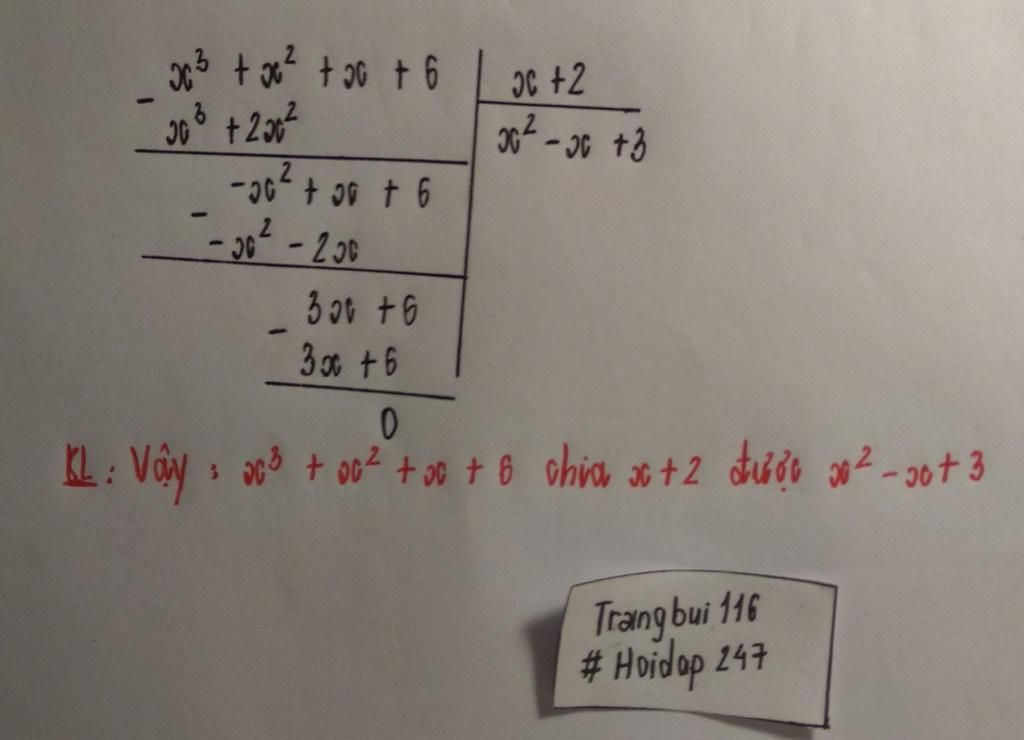 x³ + x² + x + 6 | x + 2
- x³ + 2x² | x² - x + 3
-x² + x + 6
- -x² - 2x
3x + 6
- 3x + 6
0
KL : Vậy : x³ + x² + x + 6 chia x + 2 được x² - x + 3
Trangbui 116
# Hoidap 247